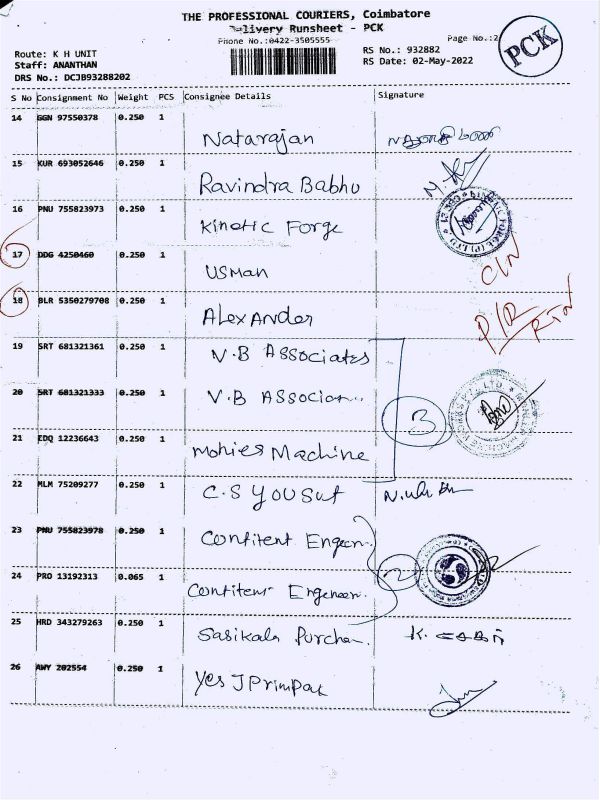 THE PROFESSIONAL COURIERS, Coimbatore
Delivery Runsheet - PCK
Phone No.:0422-3505555
Page No.:2
PCK
Route: K H UNIT
Staff: ANANTHAN
DRS No.: DCJB93288202
RS No.: 932882
RS Date: 02-May-2022
S No Consignment No Weight PCS Consignee Details Signature
14 GGN 97550378 0.250 1 Natarajan
15 KUR 693052646 0.250 1 Ravindra Babhu
16 PNU 755823973 0.250 1 Kinetic Forge
17 DDG 4250460 0.250 1 USMan C/N
18 BLR 5350279708 0.250 1 Alexander D/R RTN
19 SRT 681321361 0.250 1 V.B Associates
20 SRT 681321333 0.250 1 V.B Associan..
3
21 EDQ 12236643 0.250 1 Mohies Machine
22 MLM 75209277 0.250 1 C.S YOUSuf
23 PNU 755823978 0.250 1 Contitent Engeen.
24 PRO 13192313 0.065 1 Contitent Engeneen.
2
25 HRD 343279263 0.250 1 Sasikala Purchan.
26 AWY 202554 0.250 1 Yes J Primpak